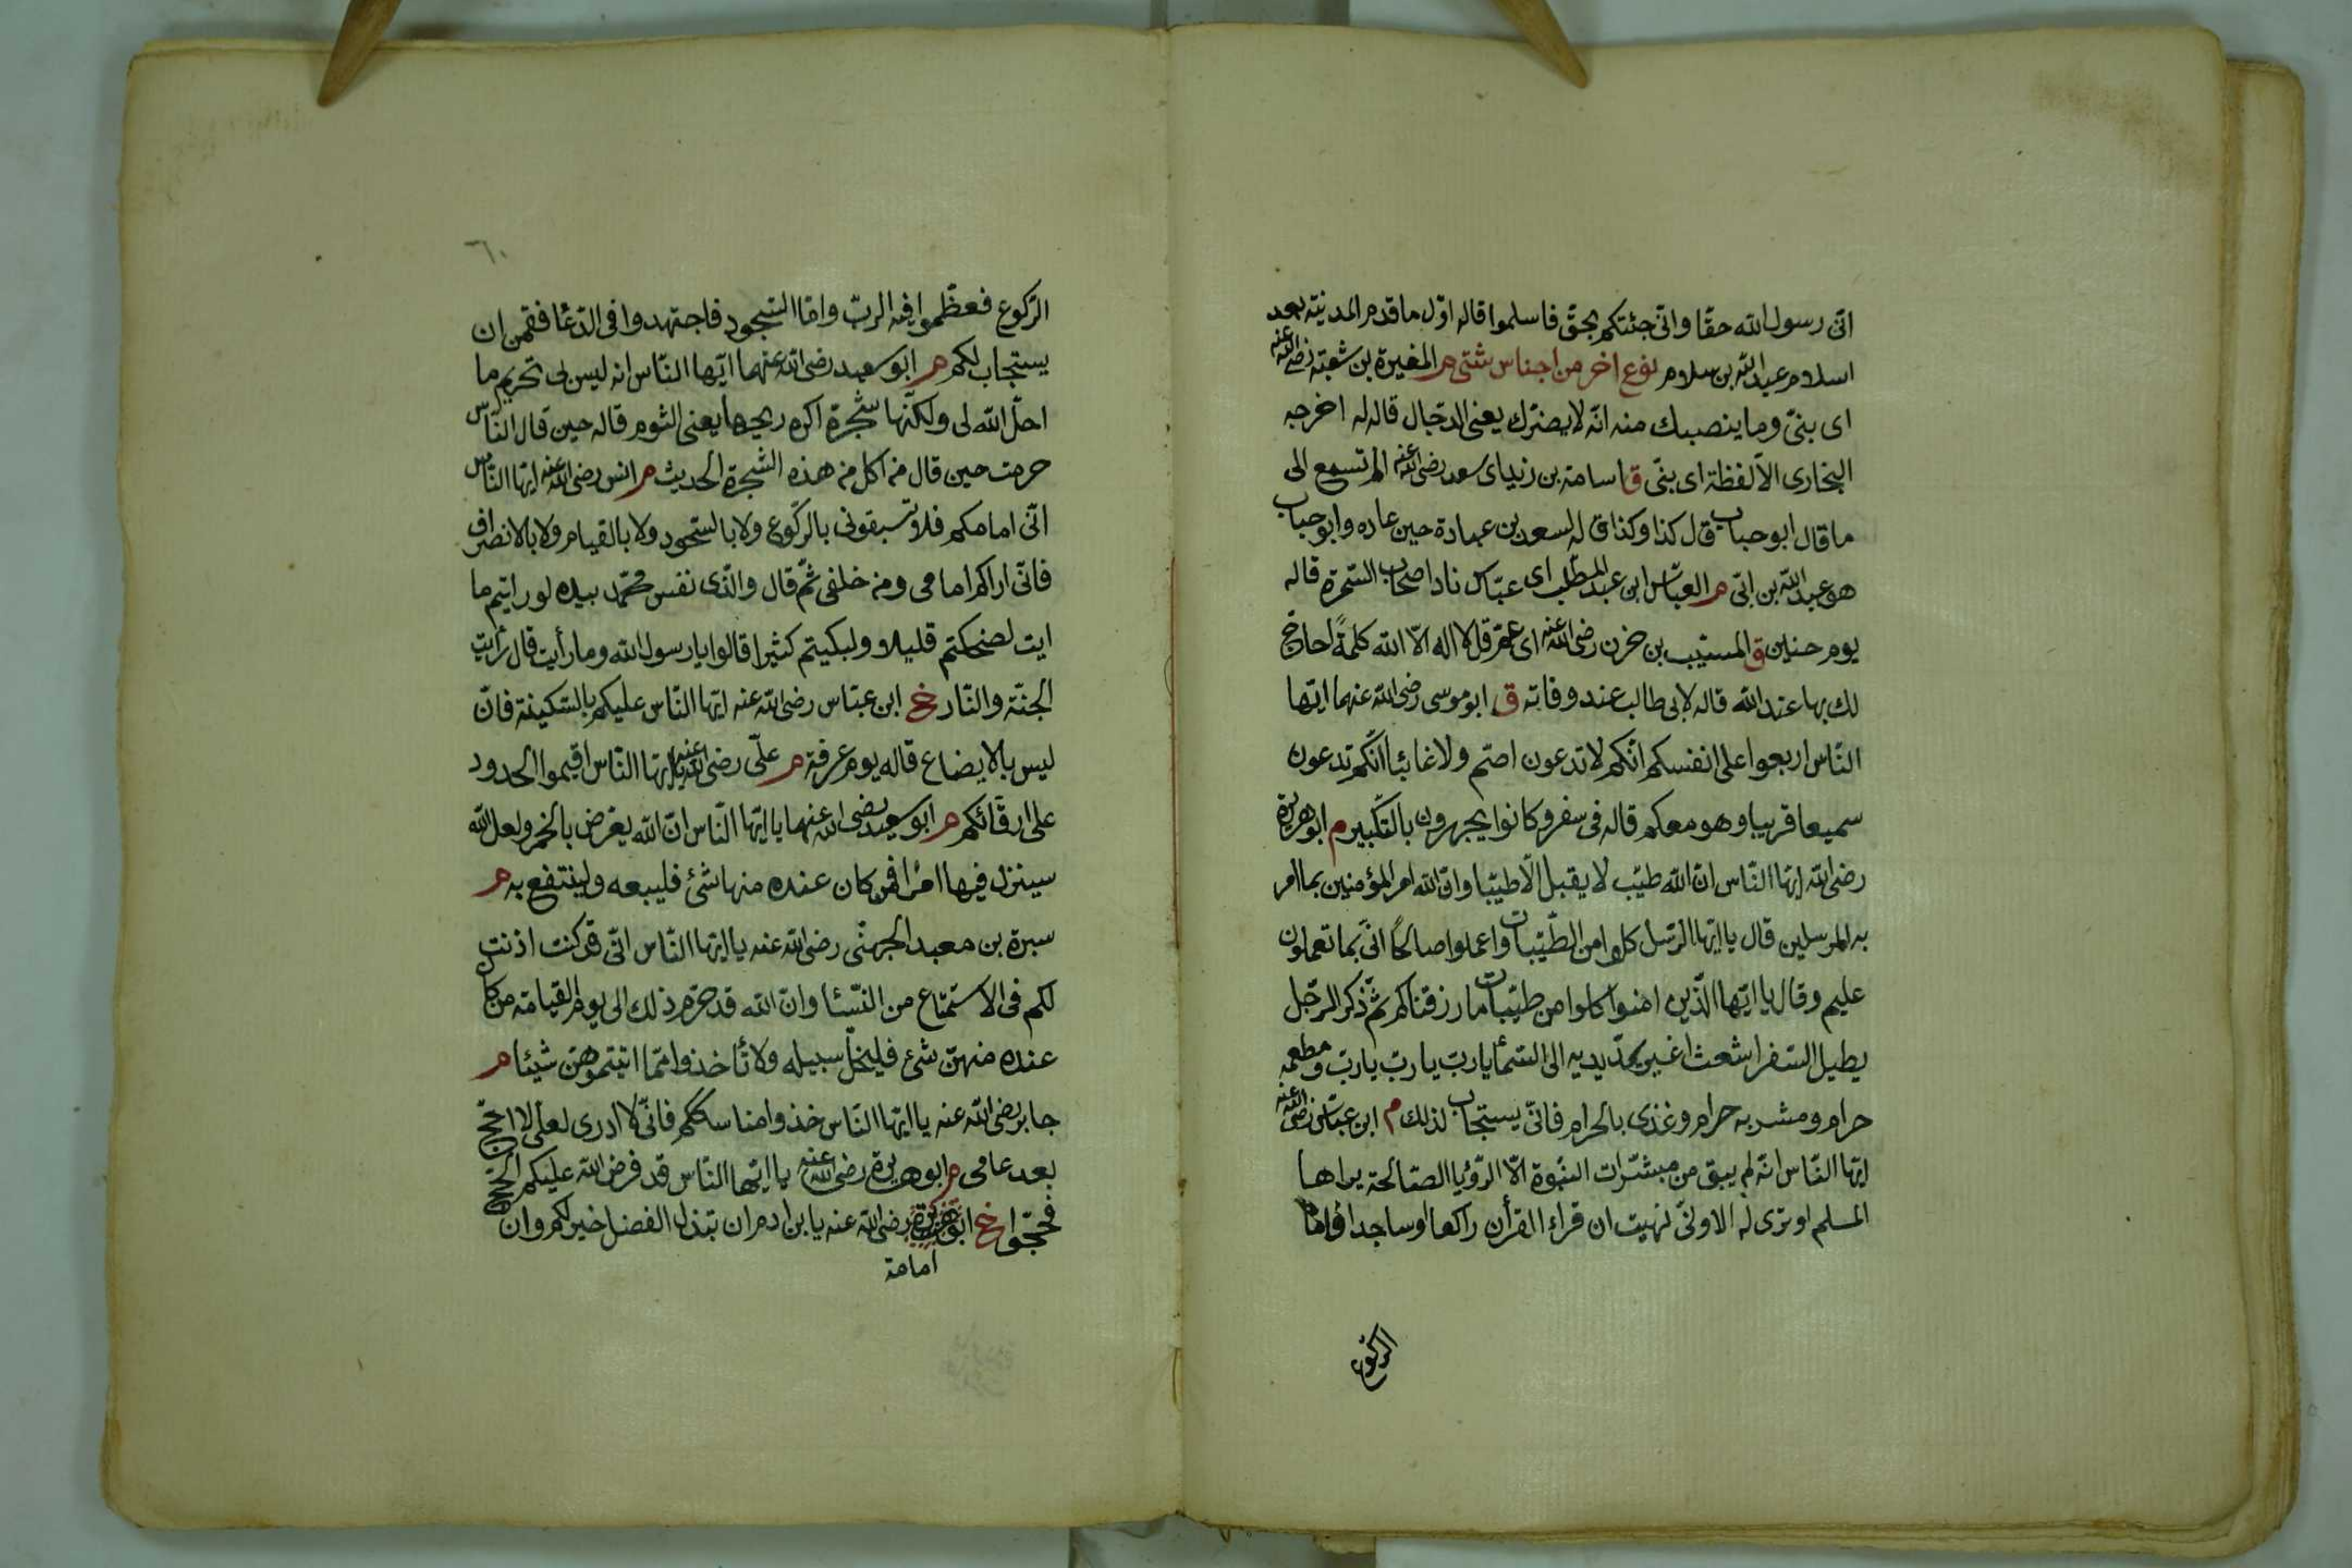 انّى رسول الله حقّا وانّى جئتكم بحقّ فاسلموا قاله اوّل ما قدم المدينة بعد
اسلام عبد الله بن سلام نوع اخر من اجناس شتى م المغيرة بن شعبة رضى الله عنه
اى بنىّ وما ينصبك منه انّه لا يضرّك يعنى الدجّال قاله له اخرجه
البخارى الّا لفظة اى بنّى ق اسامة بن زيد اى سعد رضى الله عنه الم تسمع الى
ما قال ابو حباب قال كذا وكذا قاله لسعد بن عبادة حين عاده وابو حباب
هو عبد الله بن ابّى م العبّاس ابن عبد المطّلب اى عبّاس ناد اصحاب السّمرة قاله
يوم حنين ق المسيّب بن حزن رضى الله عنه اى عمّ قل لا اله الّا الله كلمةً احاجّ
لك بها عند الله قاله لابى طالب عند وفاته ق ابو موسى رضى الله عنهما ايّها
النّاس اربعوا على انفسكم انّكم لا تدعون اصمّ ولا غائبا انّكم تدعون
سميعا قريبا وهو معكم قاله فى سفر وكانوا يجهرون بالتّكبير م ابو هريرة
رضى الله ايّها النّاس انّ الله طيّب لا يقبل الّا طيّبا وانّ الله امر المؤمنين بما امر
به المرسلين قال يا ايّها الرّسل كلوا من الطّيّبات واعملوا صالحًا انّى بما تعملون
عليم وقال يا ايّها الّذين امنوا كلوا من طيّبات ما رزقناكم ثمّ ذكر الرّجل
يطيل السّفر اشعث اغبر يمدّ يديه الى السّمأ يا ربّ يا ربّ يا ربّ ومطعمه
حرام ومشربه حرام وغذى بالحرام فانّى يستجاب لذلك م ابن عبّاس رضى الله عنه
ايّها النّاس انّه لم يبق من مبشّرات النبّوة الّا الرّؤيا الصّالحة يراها
المسلم او ترى له الا وانّى نهيت ان قراء القرأن راكعا او ساجدا فامّا
الركوع
٦٠
الرّكوع فعظّموا فيه الربّ وامّا السّجود فاجتهدوا فى الدّعأ فقمن ان
يستجاب لكم م ابو سعيد رضى الله عنهما ايّها النّاس انه ليس لى تحريم ما
احلّ الله لى ولكنّها شجرة اكره ريحها يعنى الثوم قاله حين قال النّاس
حرمت حين قال من اكل من هذه الشّجرة الحديث م انس رضى الله عنه ايّها النّاس
انّى امامكم فلا تسبقونى بالرّكوع ولا بالسّجود ولا بالقيام ولا بالانصراف
فانّى اراكم امامى ومن خلفى ثمّ قال والّذى نفس محمّد بيده لو رايتم ما
رايت لضحكتم قليلا ولبكيتم كثيرا قالوا يا رسول الله وما رأيت قال رأيت
الجنّة والنّار خ ابن عبّاس رضى الله عنه ايّها النّاس عليكم بالسّكينة فانّ
ليس بالايضاع قاله يوم عرفة م علّى رضى الله عنه يا ايّها النّاس اقيموا الحدود
على ارقّائكم م ابو سعيد رضى الله عنهما يا ايّها النّاس انّ الله يعرض بالخمر ولعلّ الله
سينزل فيها امرا فمن كان عنده منها شئ فليبعه ولينتفع به م
سبرة بن معبد الجهنّى رضى الله عنه يا ايّها النّاس انّى قد كنت اذنت
لكم فى الاستمتاع من النّسأ وانّ الله قد حرّم ذلك الى يوم القيامة من كان
عنده منهنّ شئ فليخلّ سبيله ولا تأخذوا ممّا اتيتموهنّ شيئا م
جابر رضى الله عنه يا ايّها النّاس خذوا مناسككم فانّى لا ادرى لعلّى لا احجّ
بعد عامى م ابو هريرة رضى الله عنه يا ايّها النّاس قد فرض الله عليكم الحجّ
فحجّوا خ ابو هريرة رضى الله عنه يا بن ادم ان تبذل الفضل خير لكم وان
امامة